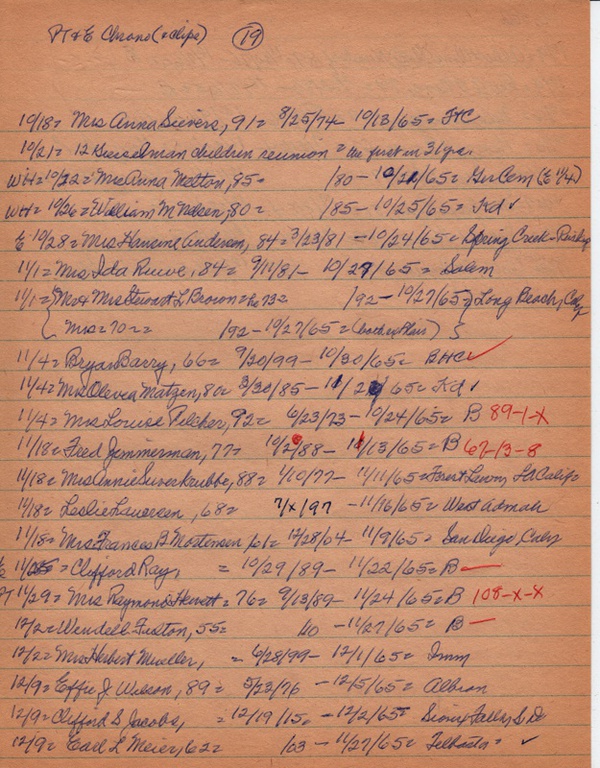 PT & E Chrono (& clips) 19
10/18 = Mrs Anna Sievers, 91 = 8/25/74 - 10/13/65 = FtC
10/21 = 12 children reunion = the first in 31 yrs.
WH = 10/22 = Mrs Anna Melton, 85 = /80 - 10/21/65 = Ger Cem (E 11/4)
WH = 10/26 = William M 80 = /85 - 10/25/65 = Kd ✓
E 10/28 = Mrs Hansine Andersen, 84 = 3/23/81 - 10/24/65 = Spring Creek -
11/1 = Mrs Ida Ruwe, 84 = 9/11/81 - 10/29/65 = Salem
11/1 = { Mr & Mrs Stewart L Brown = he 73 = /92 - 10/27/65 } Long Beach, Calif
{ Mrs = 70 = = /92 - 10/27/65 = (both) }
11/4 = Bryan Barry, 66 = 9/20/99 - 10/30/65 = BHC ✓
11/4 = Mrs Olevea Matzen, 80 = 3/30/85 - 65 = Kd ✓
11/4 = Mrs Louise Pilcher, 92 = 6/23/73 - 10/24/65 = B 89-1-X
11/18 = Fred Jemmerman, 77 = 10/2/88 - 11/13/65 = B 67-13-8
11/18 = Mrs Annie Suverkrubbe, 88 = 4/10/77 - 11/11/65 = Forest Lawn, LA Calif
11/18 = Leslie Lauersen, 68 = 7/X/97 - 11/16/65 = West Admah
11/18 = Mrs Frances B Mortensen, 61 = 12/28/04 - 11/9/65 = San Diego, Calif
E 11/25 = Clifford Ray, = 10/29/89 - 11/22/65 = B —
PT 11/29 = Mrs Raymond = 76 = 9/13/89 - 11/24/65 = B 108-X-X
12/2 = Wendell Fuston, 55 = /10 - 11/27/65 = B —
12/2 = Mrs Herbert Mueller, = 6/28/99 - 12/1/65 = Imm
12/9 = Effie J Wilson, 89 = 5/23/76 - 12/5/65 = Albion
12/9 = Clifford S Jacobs, = 12/19/15 - 12/2/65 = Sioux Falls, S D
12/9 = Earl L Meier, 62 = /03 - 11/27/65 = Tilbasta = ✓